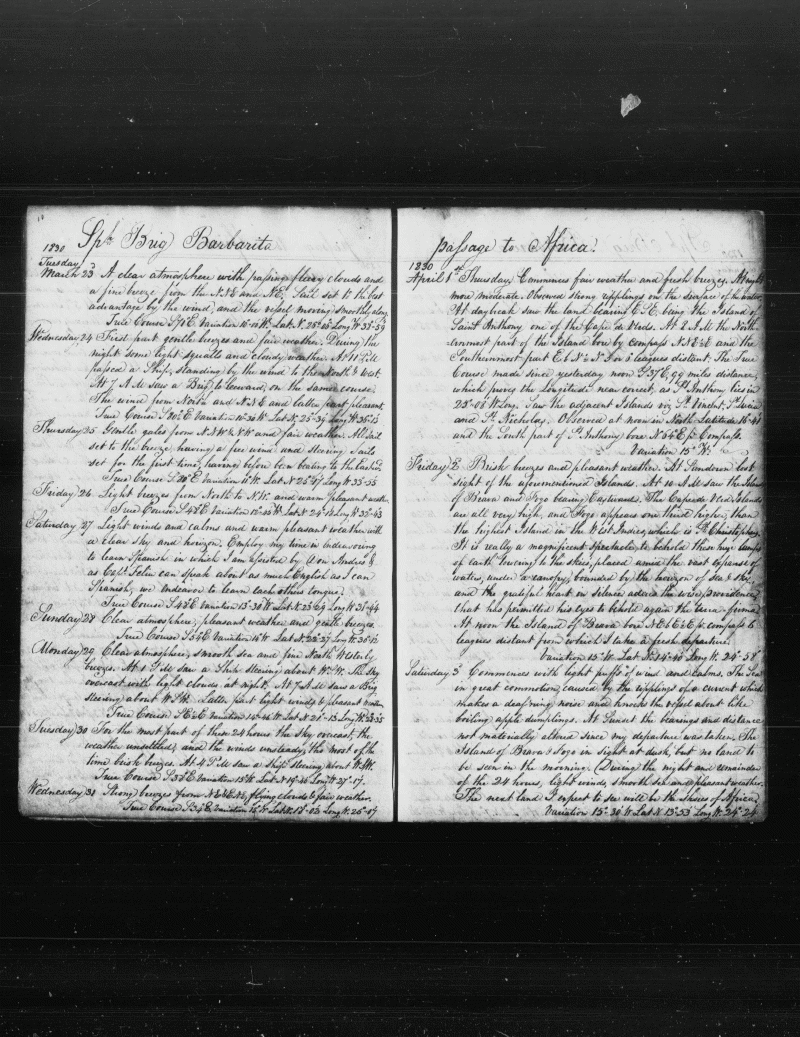 Sph Brig Barbarita
1830
Tuesday
March 23 A clear atmosphere with passing fleecy clouds and
a fine breeze from the N.N.E and N.E. Sail set to the best
advantage by the wind, and the vessel moving smoothly along
True Course Variation W. Lat. N. Long W.
Wednesday 24 First part gentle breezes and fair weather. During the
night some light squalls and cloudy weather. At P.M
passed a Ship, standing by the wind to the North & West.
At 7 A.M saw a Brig to Leeward, on the same course
The wind from North and N.N.E and latter part pleasant.
True Course Variation W. Lat N. 23°-39 Long W. 36-13
Thursday 25 Gentle gales from N.N.W & N.W and fair weather. All sail
set to the breeze having a free wind and steering Sails
set for the first time, having before been beating to the Eastward
True Course Variation W. Lat N. 25°-17 Long W. 35-55
Friday 26 Light breezes from North to N.W. and warm pleasant weather
True Course Variation W Lat N Long W.
Saturday 27 Light winds and calms and warm pleasant weather with
a clear sky and horizon. Employ my time in endeavoring
to learn Spanish in which I am assisted by Don Andres &
as Capt. Felin can speak about as much English as I can
Spanish, we endeavor to learn each others tongue.
True Course Variation 15°-30 W Lat N. Long W. 31-44
Sunday 28 Clear atmosphere, pleasant weather and gentle breezes.
True Course Variation W. Lat N. Long W.
Monday 29 Clear atmosphere, smooth sea and fine North Westerly
breezes. At 1 P.M saw a Ship steering about W.S.W. The sky
overcast with light clouds at night. At 7 A.M saw a Brig
steering about W.S.W. Latter part light winds & pleasant weather
True Course Variation W Lat N 21°-13 Long W.
Tuesday 30 For the most part of these 24 hours the Sky overcast, the
weather unsettled, and the winds unsteady, the most of the
time brisk breezes. At 4 P.M saw a Ship steering about W.S.W.
True Course Variation 15°W. Lat N. 19°-46 Long W. 27-17.
Wednesday 31 Strong breezes from N.E & E.N.E, flying clouds & fair weather.
True Course Variation W Lat N. Long W. 26-17
passage to Africa.
1830
April 1st Thursday, Commences fair weather and fresh breezes. At night
more moderate. Observed strong ripplings on the surface of the water,
At daybreak saw the land bearing E.S.E. being the Island of
Saint Anthony one of the Cape de Verds. At A.M the North-
ernmost part of the Island bore by compass N.E & E and the
Southernmost part E b S N 5 or 6 leagues distant. The True
Course made since yesterday noon 99 miles distance,
which proves the Longitude near correct, as St. Anthony lies in
25°-08 W Long. Saw the adjacent Islands viz St. Vincent, St. Lucia
and St. Nicholas. Observed at noon in North Latitude 16-48
and the South part of St. Anthony bore p. Compass.
Variation 15° W.
Friday 2 Brisk breezes and pleasant weather. At Sundown lost
sight of the aforementioned Islands. At 10 A.M saw the Islands
of Brava and Fogo bearing Eastward. The Cape de Verd Islands
are all very high, and Fogo appears one third higher, than
the highest Island in the West Indies, which is St. Christophers.
It is really a magnificent spectacle, to behold these huge lumps
of earth towering to the skies, placed amid the vast expanse of
waters, under a canopy, bounded by the horizon of sea & sky
and the grateful heart in silence adores the wise providence
that has permitted his eyes to behold again the terra-firma
At noon the Island of Brava bore N.E b E & E p. compass 6
leagues distant from which I take a fresh departure.
Variation 15° W. Lat N. 14°-40 Long W. 24°-58
Saturday 3d Commences with light puffs of wind and calms. The Sea
in great commotion caused by the ripplings of a current which
makes a deafning noise and knocks the vessel about like
boiling apple dumplings. At Sunset the bearings and distance
not materially altered since my departure was taken. The
Island of Brava & Fogo in sight at dusk, but no land to
be seen in the morning. During the night and remainder
of the 24 hours, light winds, smooth sea and pleasant weather.
The next land I expect to see will be the Shores of Africa.
Variation 15°-30 W Lat N 13°-53 Long W. 24°-24